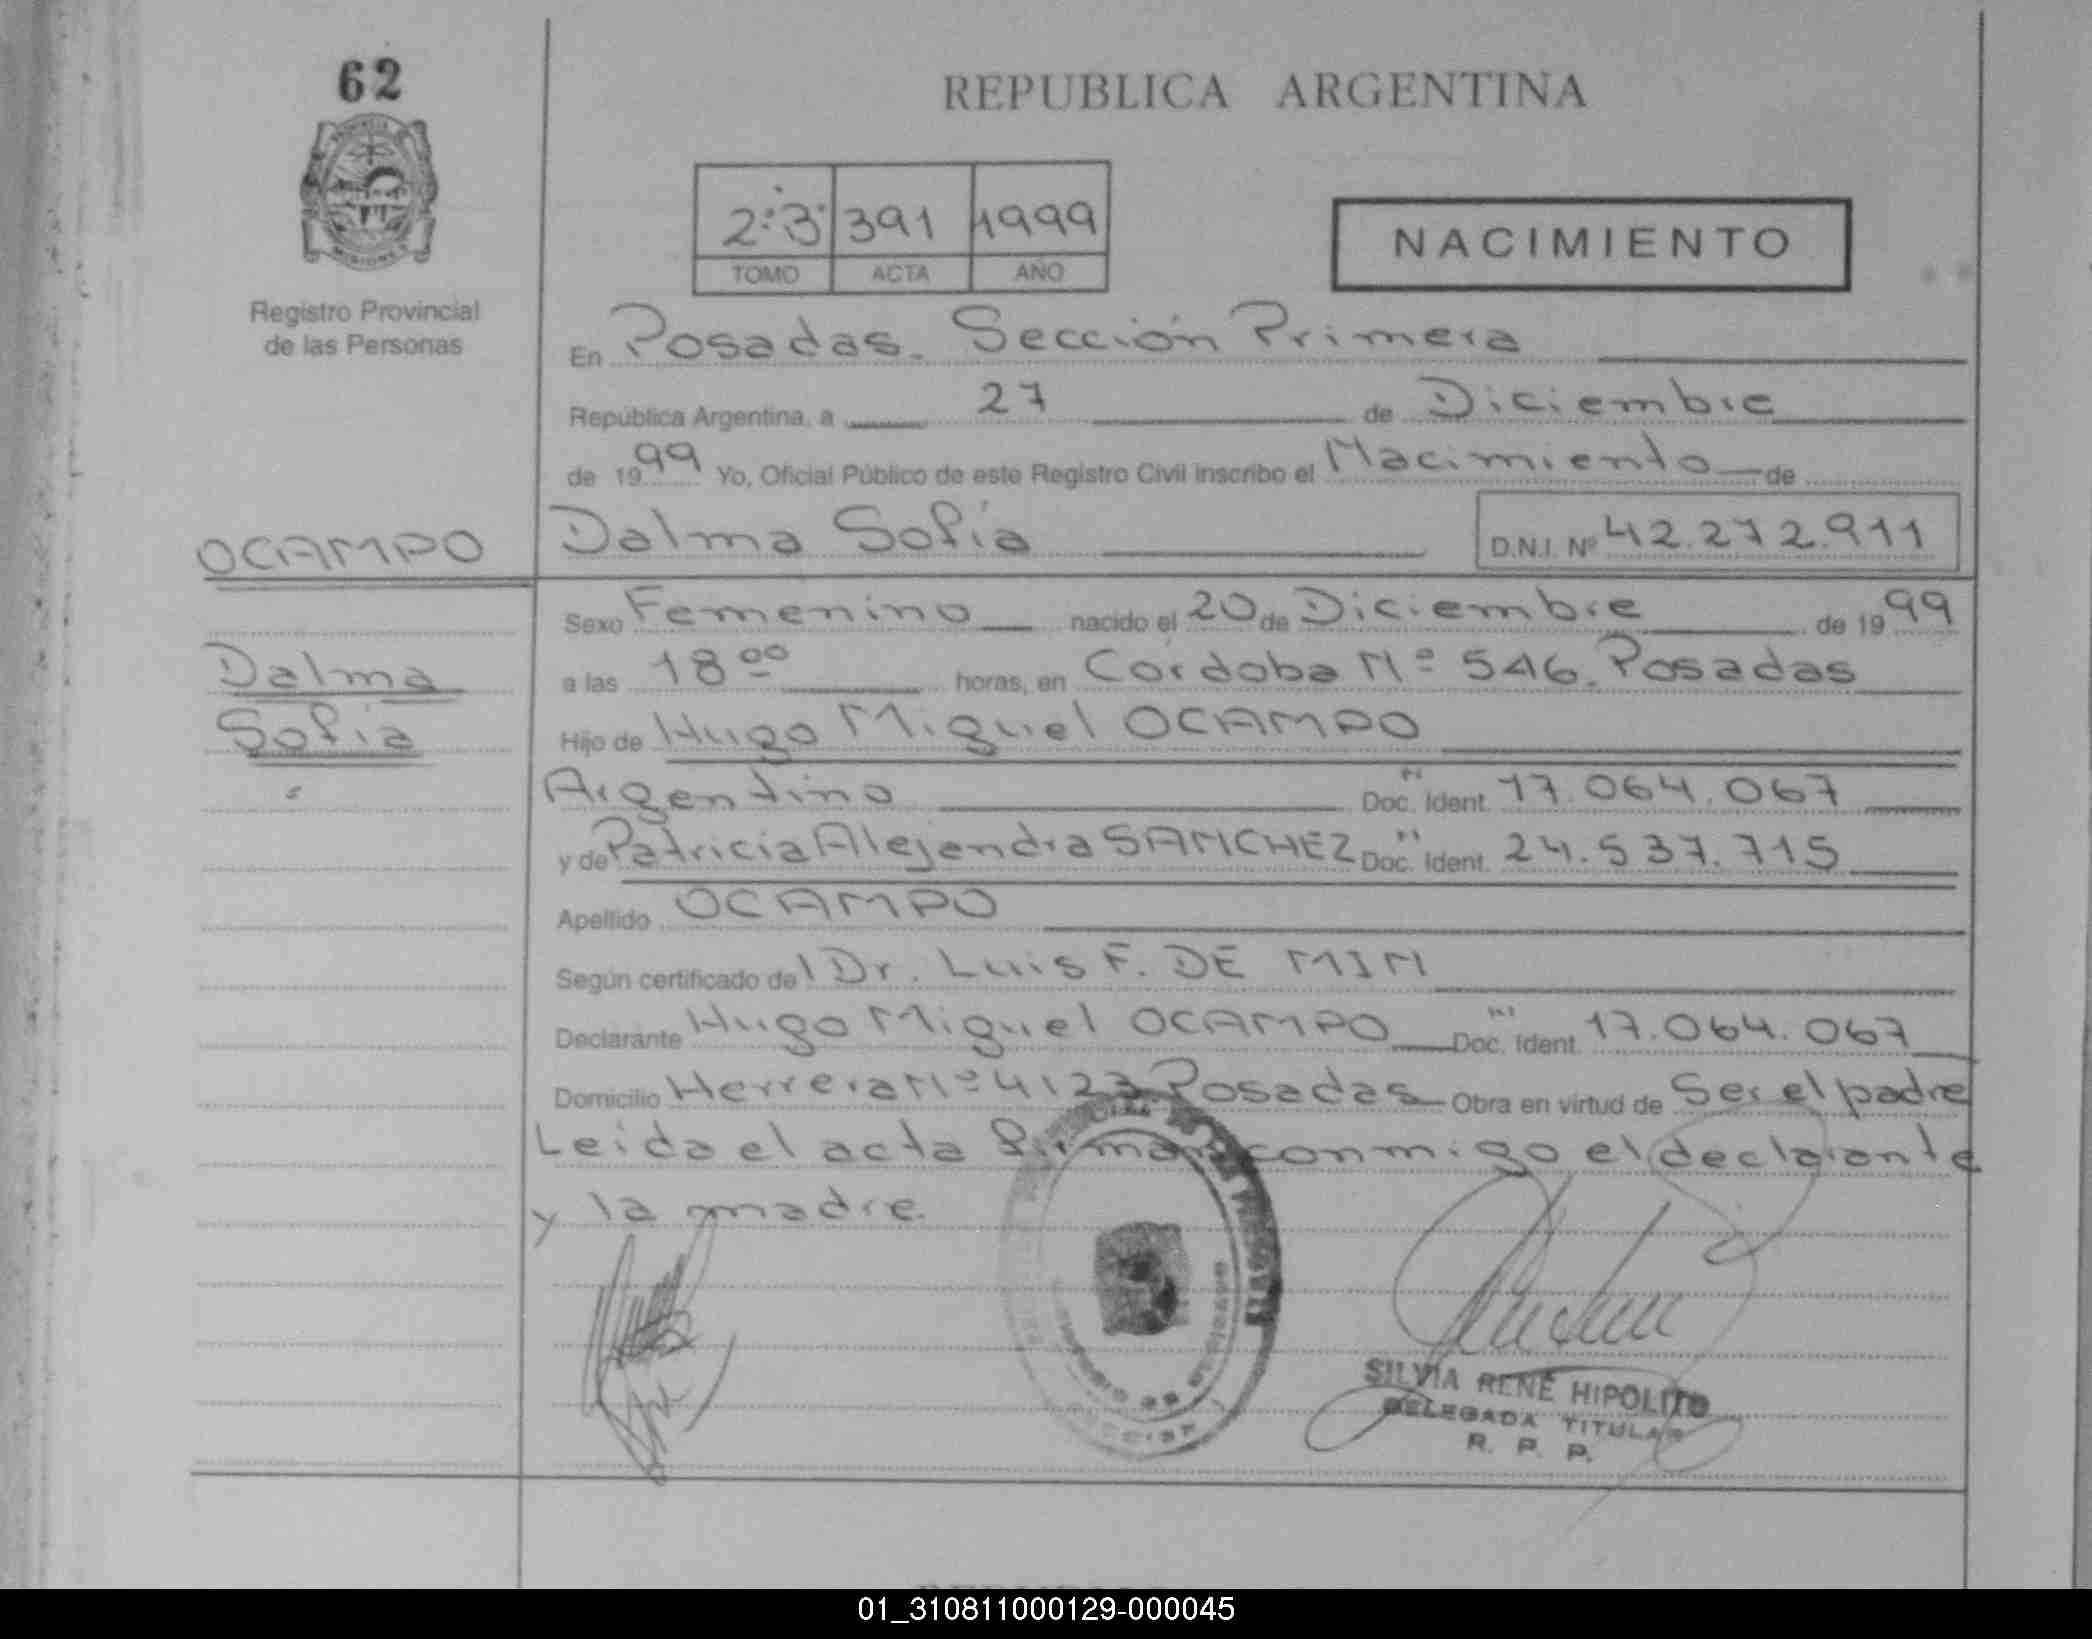 62
REPUBLICA ARGENTINA
2:3 391 1999
TOMO ACTA AÑO
NACIMIENTO
Registro Provincial
de las Personas
En Posadas. Sección Primera
República Argentina, a 27 de Diciembre
de 1999 Yo, Oficial Público de este Registro Civil inscribo el Nacimiento de
OCAMPO Dalma Sofía D.N.I. Nº 42.272.911
Sexo Femenino nacido el 20 de Diciembre de 1999
Dalma
a las 18 00 horas, en Córdoba Nº 546. Posadas
Sofía
Hijo de Hugo Miguel OCAMPO
Argentino Doc. Ident. 17.064.067
y de Patricia Alejandra SANCHEZ Doc. Ident. 24.537.715
Apellido OCAMPO
Según certificado del Dr. Luis F. DE MIN
Declarante Hugo Miguel OCAMPO Doc. Ident. 17.064.067
Domicilio Herrera Nº 4123 Posadas Obra en virtud de Ser el padre
Leida el acta firman conmigo el declarante
y la madre.
SILVIA RENÉ HIPOLITO
DELEGADA TITULAR
R. P. P.
01_310811000129-000045